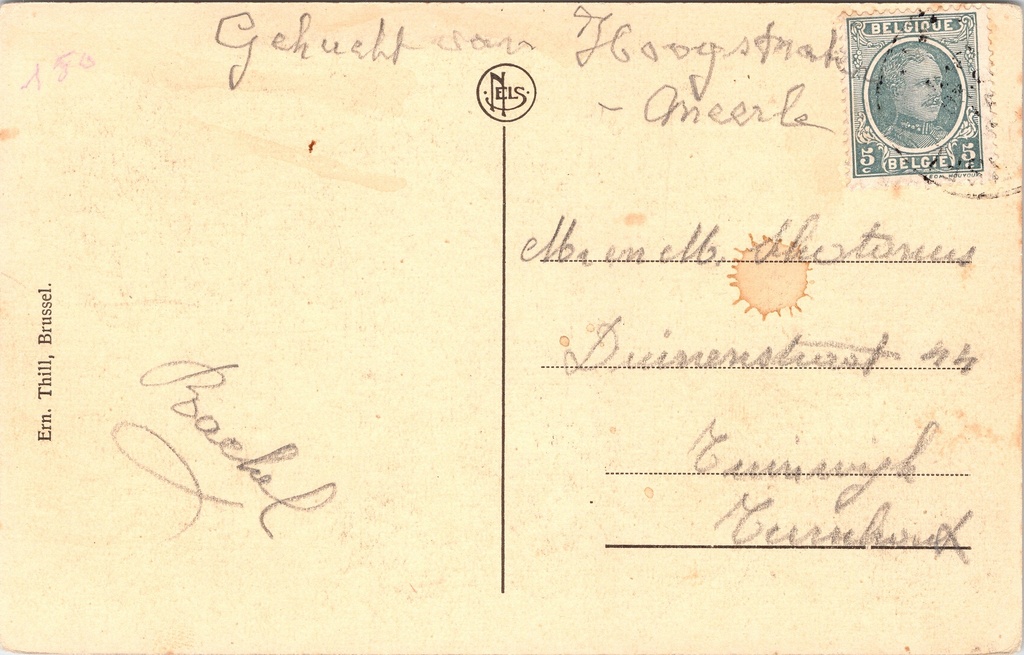 180
Gehucht van Hoogstraten
- Meerle
NELS
BELGIQUE
5 c BELGIË 5 c
Mr en M.
Duinenstraat 44
Tuinwijk
Turnhout
Rachel
Ern. Thill, Brussel.